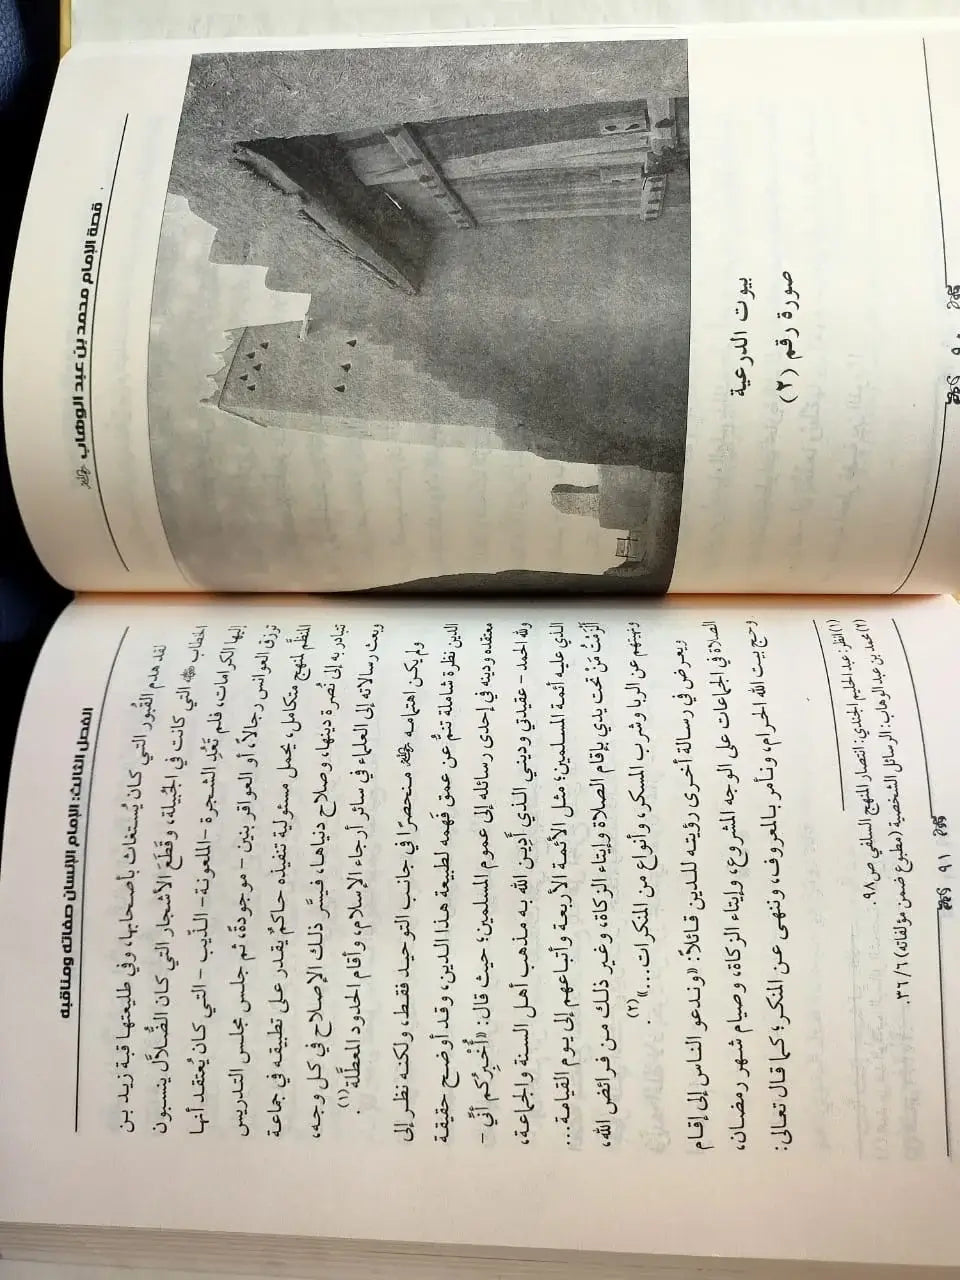 قصة الإمام محمد بن عبد الوهاب ﵀
بيوت الدرعية
صورة رقم (٢)
٩٠
الفصل الثالث: الإمام الإنسان صفاته ومناقبه
لقد هدم القُبور التي كان يُستغاث بأصحابها، وفي طليعتها قبة زيد بن
الخطاب ﵁ التي كانت في الجُبيلة، وقَطَعَ الأشجار التي كان الضُّلاَّل ينسبون
إليها الكرامات، فلم تَعُدِ الشجرة -الملعونة- الذِّيب - التي كان يُعتقد أنها
تزرق العوانس رجالاً، أو العواقر بنين - موجودةً، ثم جلس مجلس التدريس
المنظَّم لمنهج متكامل، يحمل مسئولية تنفيذه حاكمٌ يقدر على تطبيقه في جماعة
تبادر به إلى نُصرة دينها، وصلاح دنياها، فيسَّر ذلك الإصلاح في كل وجه،
وبعث رسالاته إلى العلماء في سائر أرجاء الإسلام، وأقام الحدود المعطَّلة(١).
ولم يكن اهتمامه ﵀ منحصرًا في جانب التوحيد فقط، ولكنه نظر إلى
الدين نظرة شاملة تنمُّ عن عمق فهمه لطبيعة هذا الدين، وقد أوضح حقيقة
معتقده ودينه في إحدى رسائله إلى عموم المسلمين؛ حيث قال: «أُخْبِرُكم أنِّي -
ولله الحمد - عقيدتي وديني الذي أَدِينُ الله به مذهب أهل السنة والجماعة،
الذي عليه أئمة المسلمين؛ مثل الأئمة الأربعة وأتباعهم إلى يوم القيامة...
ألزَمْتُ مَنْ تحت يدي بإقام الصلاة وإيتاء الزكاة، وغير ذلك من فرائض الله،
ونهيتهم عن الربا وشرب المسكر، وأنواع من المنكرات...»(٢).
ويعرض في رسالة أخرى رؤيته للدين قائلاً: «وندعو الناس إلى إقام
الصلاة في الجماعات على الوجه المشروع، وإيتاء الزكاة، وصيام شهر رمضان،
وحج بيت الله الحرام، ونأمر بالمعروف، وننهى عن المنكر؛ كما قال تعالى:
(١) انظر: عبد الحليم الجندي: انتصار المنهج السلفي ص٩٨.
(٢) محمد بن عبد الوهاب: الرسائل الشخصية (مطبوع ضمن مؤلفاته) ٦/ ٣٦.
٩١